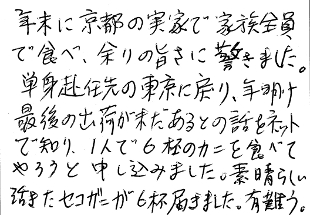 年末に京都の実家で家族全員
で食べ、余りの旨さに驚きました。
単身赴任先の東京に戻り、年明け
最後の出荷がまだあるとの話をネット
で知り、1人で6杯のカニを食べて
やろうと申し込みました。素晴らしい
活きたセコガニが6杯届きました。有難う。